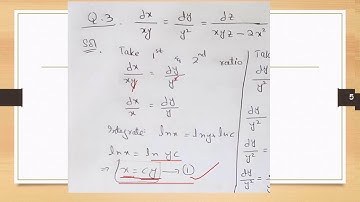 Q.3. dx/xy = dy/y² = dz/xyz-2x²
Sol. Take 1st & 2nd ratio
dx/xy = dy/y²
dx/x = dy/y
Integrate: lnx = lny + lnc
lnx = ln yc
⇒ x = cy → ①
Take
dy/y²
dy/y²
dy/y²
dy/y²
5